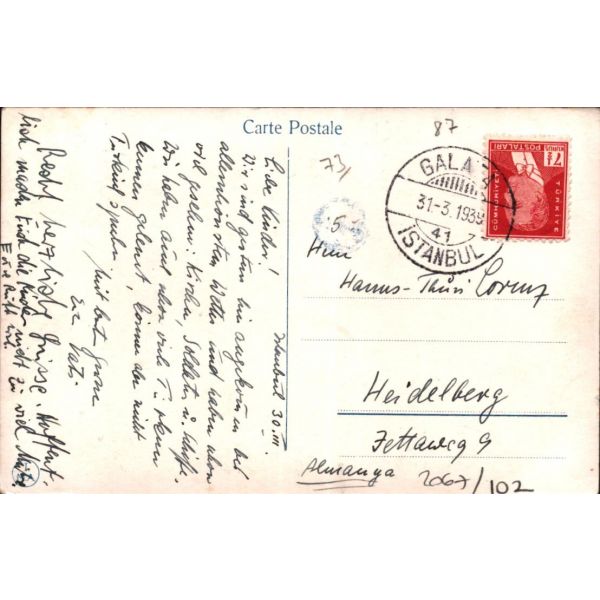 Carte Postale
87
73/
5
GALATA
31-3.1939
41
ISTANBUL
TÜRKİYE
CÜMHURİYETİ
POSTALARI
7½ KURUŞ
Istanbul 30.III.
Liebe Kinder!
Wir sind gestern hier angekommen bei
allerschönstem Wetter und haben schon
viel gesehen: Kirchen, Soldaten u. Schiffe.
Wir haben auch schon viele Türken
kennen gelernt, können aber nicht
Türkisch sprechen.
Mit best. Gruss
Euer Vati.
Recht herzliche Grüsse. Hoffent-
lich machen Euch die Kinder nicht zu viel Mühe
Eure
Herrn
Hanns- Lorenz
Heidelberg
9
Almanya 2067/102